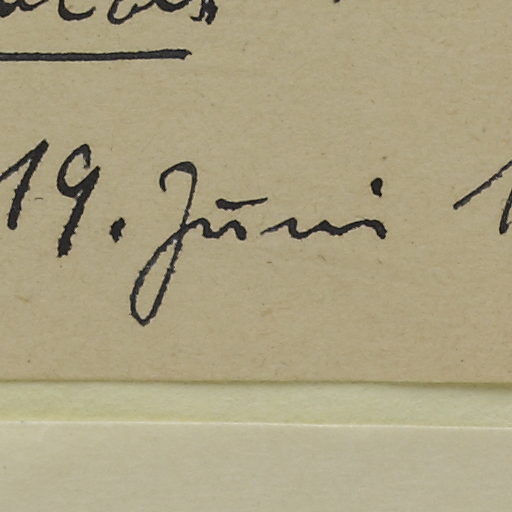 19. Juni 1